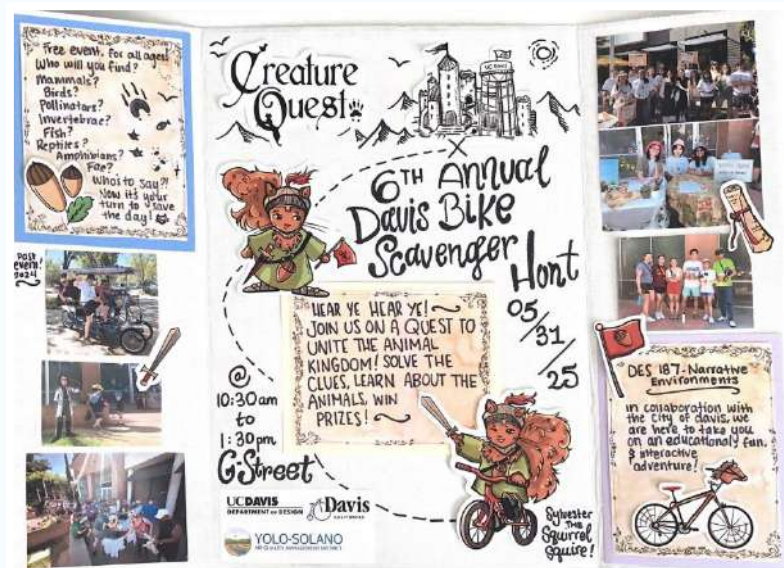 Free event, for all ages!
Who will you find?
Mammals?
Birds?
Pollinators?
Invertebrae?
Fish?
Reptiles?
Amphibians?
Fae?
Who's to say?!
Now it's your
turn to save
the day!
Past
event!
2024
Creature
Quest
UC DAVIS
6TH Annual
Davis Bike
Scavenger
Hunt
05/31/25
HEAR YE HEAR YE!
JOIN US ON A QUEST TO
UNITE THE ANIMAL
KINGDOM! SOLVE THE
CLUES, LEARN ABOUT THE
ANIMALS, WIN
PRIZES!
@
10:30am
to
1:30pm
G-Street
UCDAVIS
DEPARTMENT OF DESIGN
Davis
CALIFORNIA
YOLO-SOLANO
AIR QUALITY MANAGEMENT DISTRICT
Sylvester
THE
Squirrel
Squire!
DES 187-Narrative
Environments
in collaboration with
the City of Davis, we
are here to take you
on an educationaly fun,
& interactive
adventure!